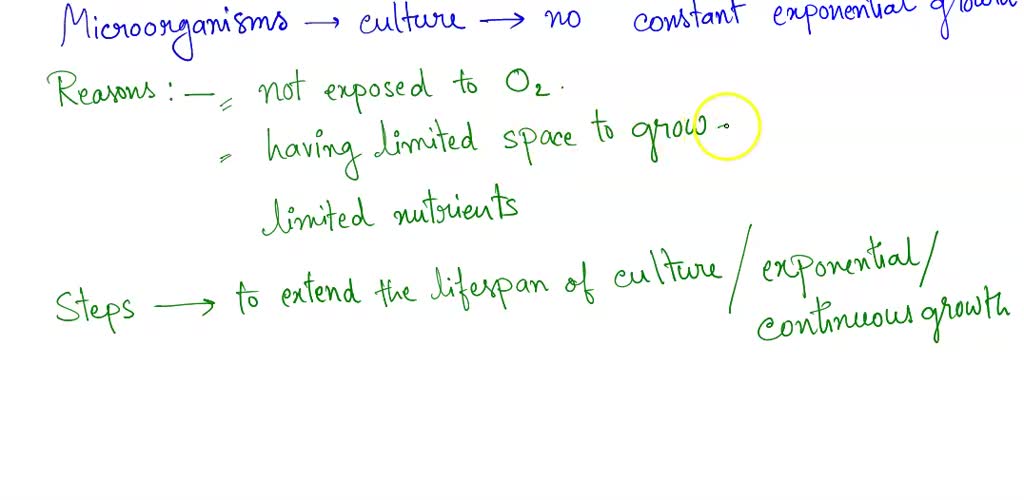 Microorganisms → culture → no constant exponential growth
Reasons : — = not exposed to O2.
= having limited space to grow .
limited nutrients
Steps → to extend the lifespan of culture / exponential /
continuous growth